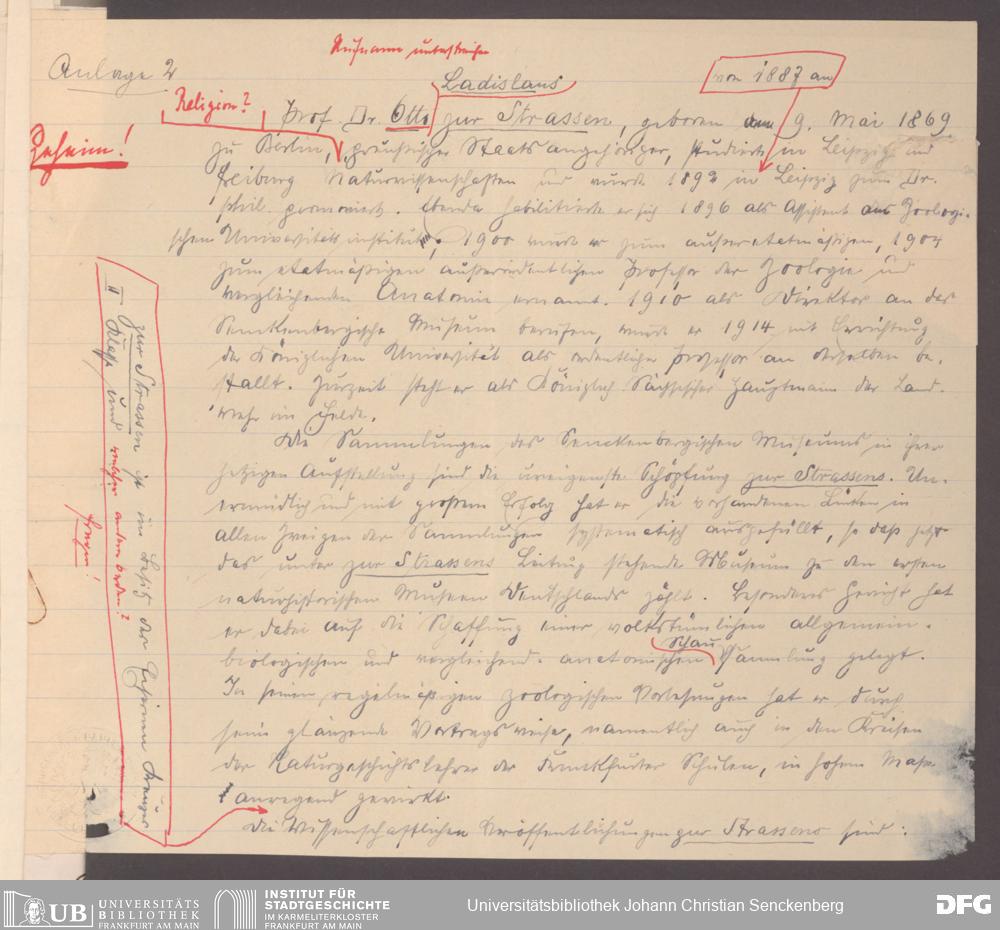 Rufname unterstreichen
Anlage 2
Ladislaus
von 1887 an
Religion?
Prof. Dr. Otto zur Strassen, geboren am 9. Mai 1869
Geheim!
zu Berlin, preußischer Staatsangehöriger, studierte in Leipzig und
Freiburg Naturwissenschaften und wurde 1892 in Leipzig zum Dr.
phil. promoviert. Ebenda habilitierte er sich 1896 als Assistent am Zoologi-
schen Universitätsinstitut, 1900 wurde er zum außeretatmäßigen, 1904
zum etatmäßigen außerordentlichen Professor der Zoologie und
vergleichenden Anatomie ernannt. 1910 als Direktor an das
Senckenbergische Museum berufen, wurde er 1914 mit Errichtung
der Königlichen Universität als ordentlicher Professor an derselben be-
stallt. Zurzeit steht er als Königlich Sächsischer Hauptmann der Land-
wehr im Felde.
Die Sammlungen des Senckenbergischen Museums in ihrer
jetzigen Aufstellung sind die ureigenste Schöpfung zur Strassens. Un-
ermüdlich und mit großem Erfolg hat er die vorhandenen Lücken in
allen Zweigen der Sammlungen systematisch ausgefüllt, so daß jetzt
das unter zur Strassens Leitung stehende Museum zu den ersten
naturhistorischen Museen Deutschlands zählt. Besonderes Gewicht hat
er dabei auf die Schaffung einer volkstümlichen allgemein-
Schau
biologischen und vergleichend-anatomischen Sammlung gelegt.
In seinen regelmäßigen zoologischen Vorlesungen hat er durch
seine glänzende Vortragsweise, namentlich auch in den Kreisen
der Naturgeschichtslehrer der Frankfurter Schulen, in hohem Maße
anregend gewirkt.
Die Wissenschaftlichen Veröffentlichungen zur Strassens sind:
zur Strassen ist im Besitz der
II Klasse und welcher anderen Orden?
fragen!
UB UNIVERSITÄTS
BIBLIOTHEK
FRANKFURT AM MAIN
INSTITUT FÜR
STADTGESCHICHTE
IM KARMELITERKLOSTER
FRANKFURT AM MAIN
Universitätsbibliothek Johann Christian Senckenberg
DFG